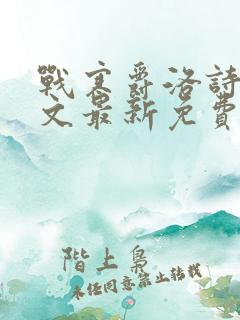 戰寒爵洛詩
文最新免費
階上梟
未经同意禁止转载